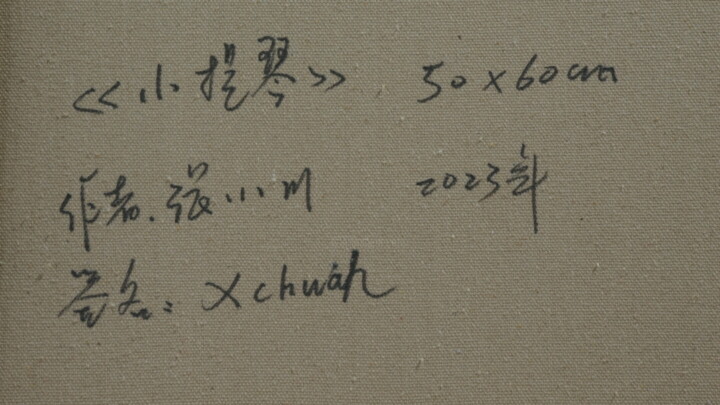 《小提琴》 50×60cm
作者.张小川 2023年
签名: Xchuan